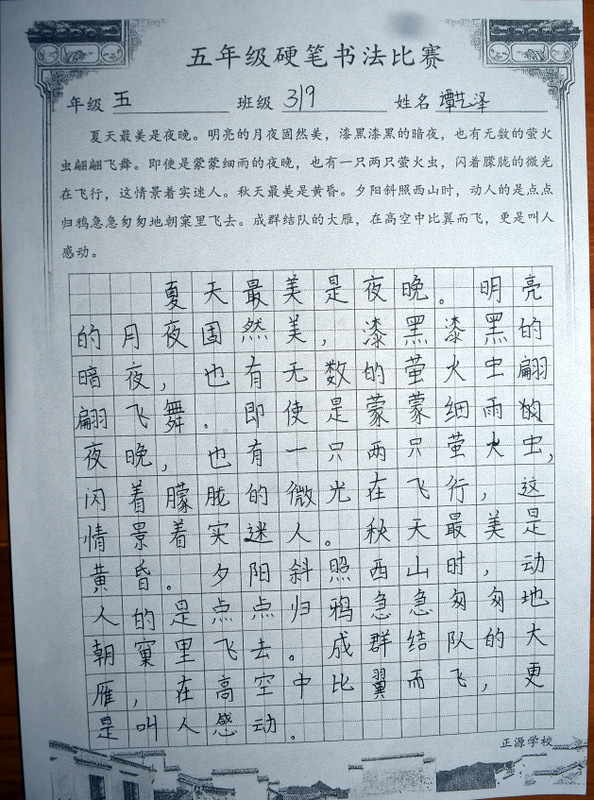 五年级硬笔书法比赛
年级 五 班级 319 姓名 谭艺泽
夏天最美是夜晚。明亮的月夜固然美，漆黑漆黑的暗夜，也有无数的萤火
虫翩翩飞舞。即使是蒙蒙细雨的夜晚，也有一只两只萤火虫，闪着朦胧的微光
在飞行，这情景着实迷人。秋天最美是黄昏。夕阳斜照西山时，动人的是点点
归鸦急急匆匆地朝窠里飞去。成群结队的大雁，在高空中比翼而飞，更是叫人
感动。
夏天最美是夜晚。明亮
的月夜固然美，漆黑漆黑的
暗夜，也有无数的萤火虫翩
翩飞舞。即使是蒙蒙细雨的
夜晚，也有一只两只萤火虫，
闪着朦胧的微光在飞行，这
情景着实迷人。秋天最美是
黄昏。夕阳斜照西山时，动
人的是点点归鸦急急匆匆地
朝窠里飞去。成群结队的大
雁，在高空中比翼而飞，更
是叫人感动。
正源学校